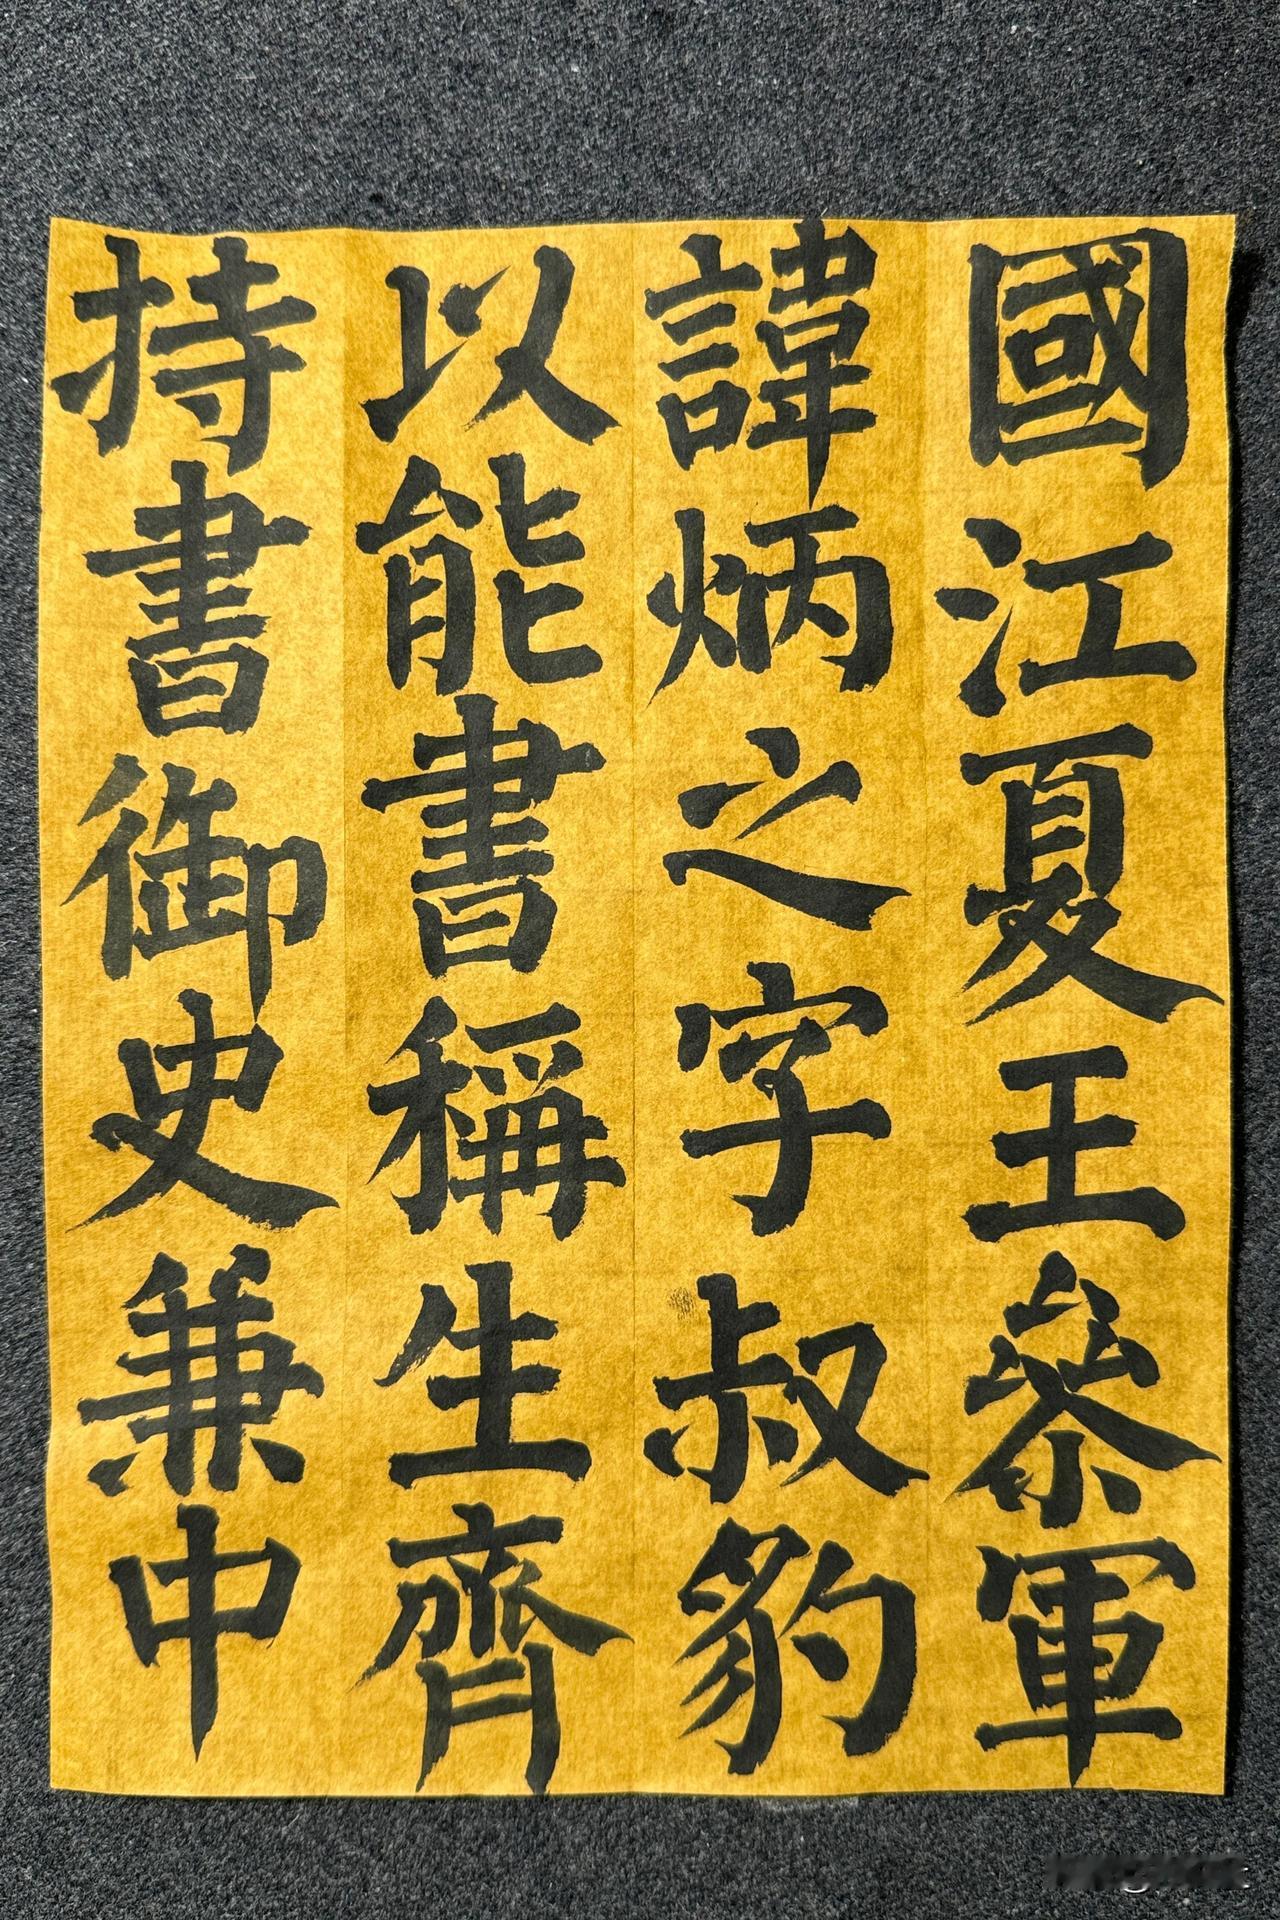 國江夏王參軍
諱炳之字叔豹
以能書稱生齊
持書御史兼中